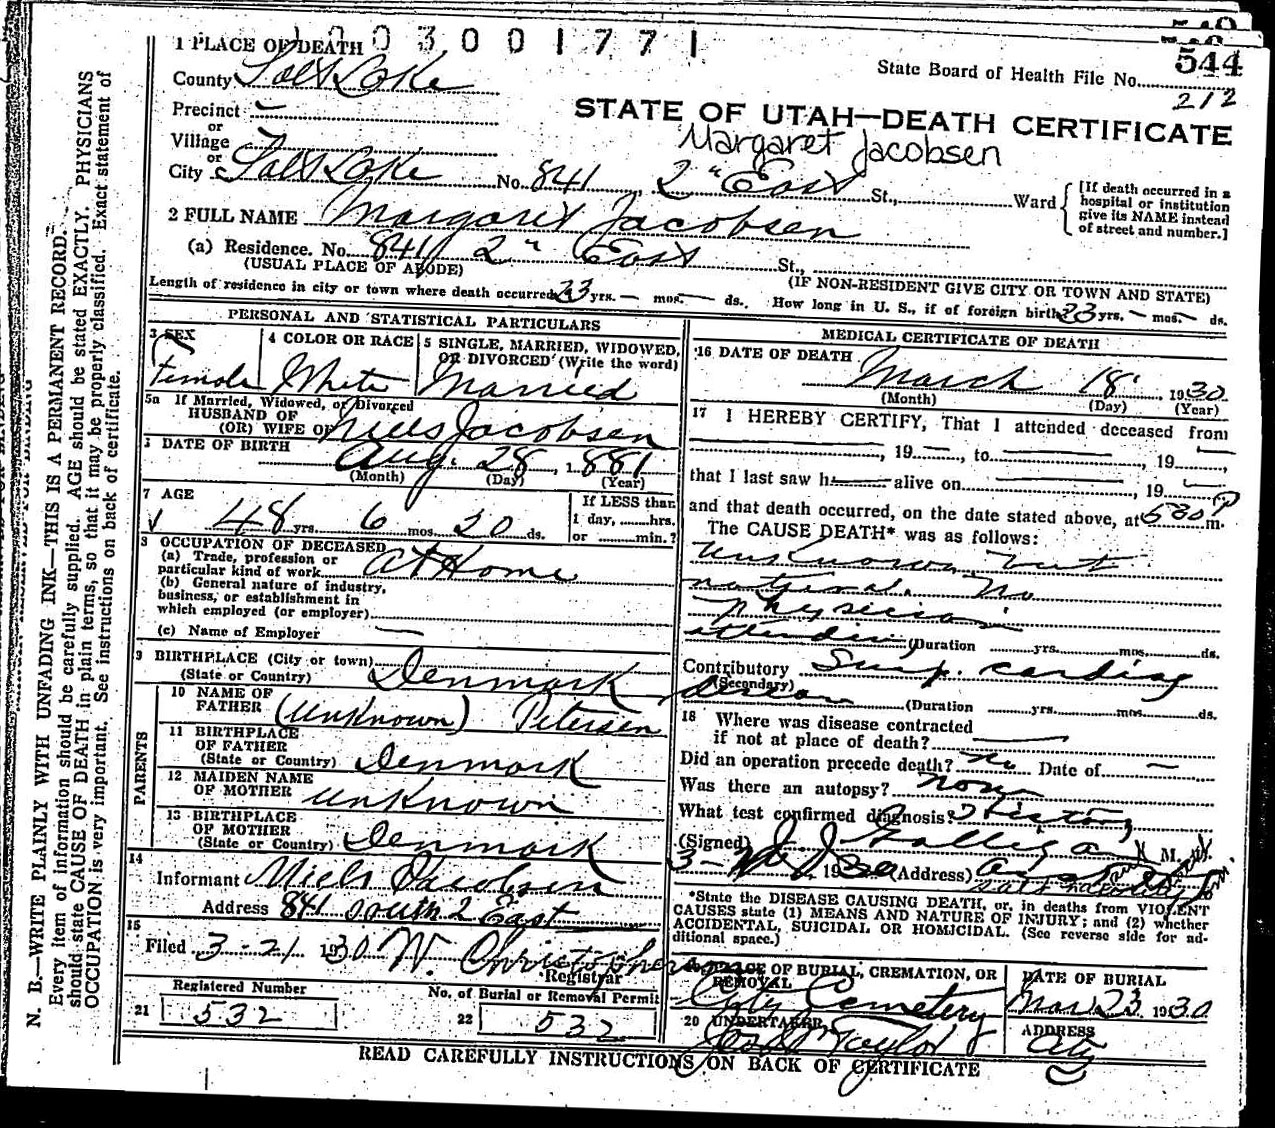 1 PLACE OF DEATH 1003001771
544
State Board of Health File No.
212
County Salt Lake
Precinct
or
Village
or
City Salt Lake No. 841 2" East St., Ward
STATE OF UTAH—DEATH CERTIFICATE
Margaret Jacobsen
[If death occurred in a
hospital or institution
give its NAME instead
of street and number.]
2 FULL NAME Margaret Jacobsen
(a) Residence. No. 841 2" East St.,
(USUAL PLACE OF ABODE) (IF NON-RESIDENT GIVE CITY OR TOWN AND STATE)
Length of residence in city or town where death occurred 23 yrs. — mos. — ds. How long in U. S., if of foreign birth? 23 yrs. — mos. — ds.
PERSONAL AND STATISTICAL PARTICULARS
3 SEX
Female
4 COLOR OR RACE
White
5 SINGLE, MARRIED, WIDOWED,
OR DIVORCED (Write the word)
Married
5a If Married, Widowed, or Divorced
HUSBAND OF
(OR) WIFE OF Niels Jacobsen
DATE OF BIRTH Aug. 28, 1881
(Month) (Day) (Year)
7 AGE
48 yrs. 6 mos. 20 ds.
If LESS than
1 day, ......hrs.
or ......min.?
8 OCCUPATION OF DECEASED
(a) Trade, profession or
particular kind of work At Home
(b) General nature of industry,
business, or establishment in
which employed (or employer)
(c) Name of Employer —
9 BIRTHPLACE (City or town)
(State or Country) Denmark
PARENTS
10 NAME OF
FATHER (Unknown) Petersen
11 BIRTHPLACE
OF FATHER
(State or Country) Denmark
12 MAIDEN NAME
OF MOTHER Unknown
13 BIRTHPLACE
OF MOTHER
(State or Country) Denmark
14
Informant Niels Jacobsen
Address 841 South 2 East
15
Filed 3-21 1930 W. Christopherson
Registrar
Registered Number
21 532
No. of Burial or Removal Permit
22 532
MEDICAL CERTIFICATE OF DEATH
16 DATE OF DEATH
March 18 1930
(Month) (Day) (Year)
17 I HEREBY CERTIFY, That I attended deceased from
, 19 , to , 19
that I last saw h alive on , 19
and that death occurred, on the date stated above, at 530 P m.
The CAUSE DEATH* was as follows:
Unknown but
natural. No
physician
attending
(Duration yrs. mos. ds.
Contributory Sup. cardiac
(Secondary)
(Duration yrs. mos. ds.
18 Where was disease contracted
if not at place of death?
Did an operation precede death? No Date of —
Was there an autopsy? None
What test confirmed diagnosis? History
(Signed) J. J. Galligan M. D.
1930 (Address)
*State the DISEASE CAUSING DEATH, or, in deaths from VIOLENT
CAUSES state (1) MEANS AND NATURE OF INJURY; and (2) whether
ACCIDENTAL, SUICIDAL OR HOMICIDAL. (See reverse side for ad-
ditional space.)
PLACE OF BURIAL, CREMATION, OR
REMOVAL
City Cemetery
DATE OF BURIAL
Mar 23 1930
20 UNDERTAKER
Taylor
ADDRESS
City
READ CAREFULLY INSTRUCTIONS ON BACK OF CERTIFICATE
N. B.—WRITE PLAINLY WITH UNFADING INK—THIS IS A PERMANENT RECORD.
Every item of information should be carefully supplied. AGE should be stated EXACTLY. PHYSICIANS
should state CAUSE OF DEATH in plain terms, so that it may be properly classified. Exact statement of
OCCUPATION is very important. See instructions on back of certificate.